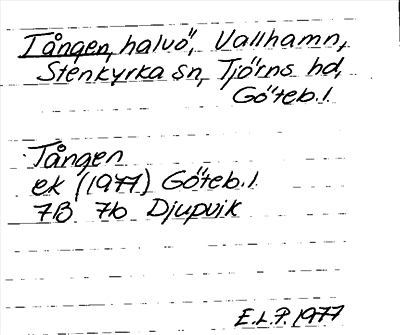 Tången, halvö, Vallhamn,
Stenkyrka sn, Tjörns hd,
Göteb. l.
Tången
ek (1977) Göteb. l.
7B 7b Djupvik
E.L.P. 1977